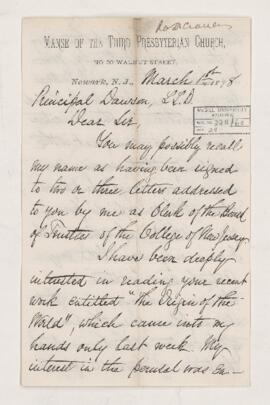 MANSE OF THE THIRD PRESBYTERIAN CHURCH,
NO 30 WALNUT STREET,
Newark, N. J., March 1st 1878
Principal Dawson, L.L.D.
Dear Sir,
McGILL UNIVERSITY
ARCHIVES
You may possibly recall
my name as having been signed
to two or three letters addressed
to you by me as Clerk of the Board
of Trustees of the College of New Jersey.
I have been deeply
interested in reading your recent
work entitled "The Origin of the
World", which came into my
hands only last week. My
interest in the perusal was en-